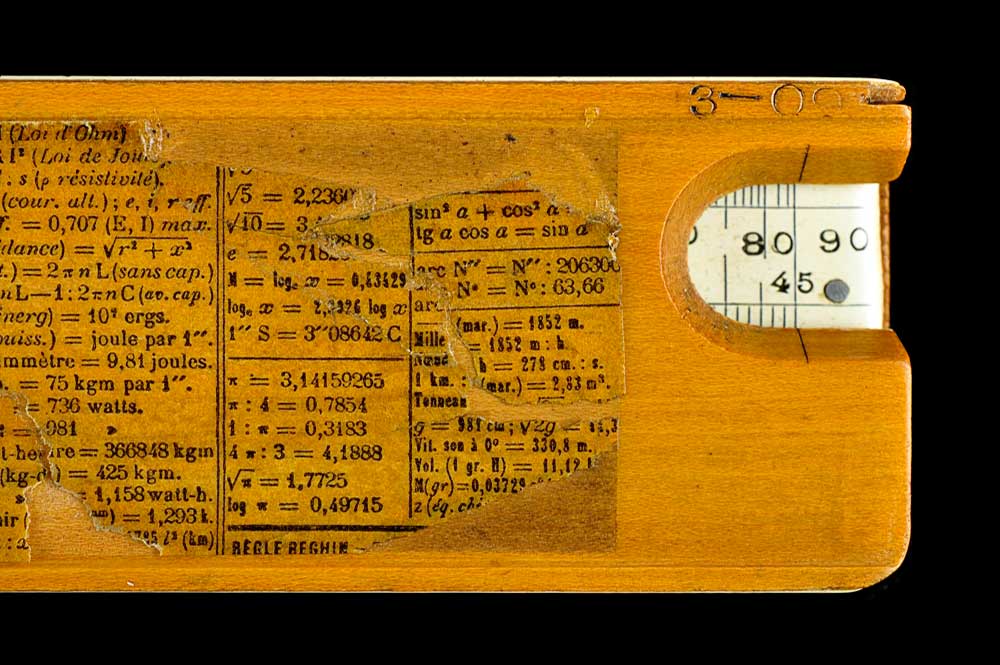 3—0
(Loi d'Ohm)
I² (Loi de Jou
. s (ρ résistivité).
(cour. alt.); e, i, r eff.
f. = 0,707 (E, I) max.
dance) = √r² + x²
t.) = 2 π n L (sans cap.)
nL—1:2πnC (av. cap.)
énerg) = 10⁷ ergs.
ouiss.) = joule par 1″.
mmètre = 9,81 joules.
. = 75 kgm par 1″.
= 736 watts.
= 981 »
t-he re = 366848 kgm
(kg-d ) = 425 kgm.
» = 1,158 watt-h.
air ( ) = 1,293 k.
l² (km)
√5 = 2,2360
√10 = 3,
e = 2,718 2818
M = logₑ x = 0,43429
logₑ x = log x
1″ S = 3″08642 C
π = 3,14159265
π : 4 = 0,7854
1 : π = 0,3183
4 π : 3 = 4,1888
√π = 1,7725
log π = 0,49715
RÈGLE BEGHIN
sin² a + cos² a
tg a cos a = sin a
arc N″ = N″ : 20630
N° = N° : 63,66
arc
Mille (mar.) = 1852 m.
Nœud = 1852 m : h.
1 km. : h = 278 cm. : s.
Tonneau (mar.) = 2,83 m³.
g = 981 cm ; √2g =
Vit. son à 0° = 330,8 m.
Vol. (1 gr. H) = 11,12 l
M(gr) = 0,03729
2 (éq. ch
80 90
45